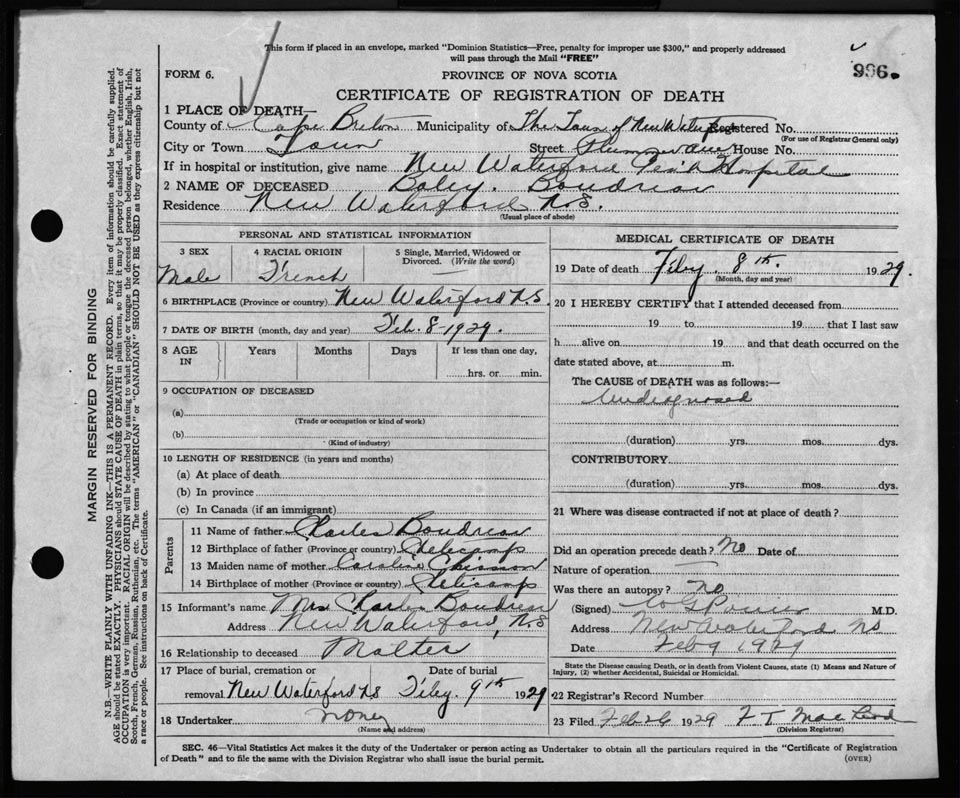 This form if placed in an envelope, marked "Dominion Statistics—Free, penalty for improper use $300," and properly addressed
will pass through the Mail "FREE"
996.
FORM 6.
PROVINCE OF NOVA SCOTIA
CERTIFICATE OF REGISTRATION OF DEATH
1 PLACE OF DEATH—
County of Cape Breton Municipality of The Town of New Waterford Registered No.
(For use of Registrar General only)
City or Town Town Street Plummer Ave House No.
If in hospital or institution, give name New Waterford Hospital
2 NAME OF DECEASED Baby. Boudreau
Residence New Waterford N.S.
(Usual place of abode)
PERSONAL AND STATISTICAL INFORMATION
3 SEX 4 RACIAL ORIGIN 5 Single, Married, Widowed or
Divorced. (Write the word)
Male French
6 BIRTHPLACE (Province or country) New Waterford N.S.
7 DATE OF BIRTH (month, day and year) Feb. 8-1929.
8 AGE IN Years Months Days If less than one day,
hrs. or min.
9 OCCUPATION OF DECEASED
(a)
(Trade or occupation or kind of work)
(b)
(Kind of industry)
10 LENGTH OF RESIDENCE (in years and months)
(a) At place of death
(b) In province
(c) In Canada (if an immigrant)
Parents
11 Name of father Charles Boudreau
12 Birthplace of father (Province or country) Chelicamp
13 Maiden name of mother Caroline Chiasson
14 Birthplace of mother (Province or country) Chelicamp
15 Informant's name Mrs Charles Boudreau
Address New Waterford, N.S
16 Relationship to deceased Mother
17 Place of burial, cremation or Date of burial
removal New Waterford NS Feby. 9th 1929
18 Undertaker none
(Name and address)
MEDICAL CERTIFICATE OF DEATH
19 Date of death Feby. 8th. 1929.
(Month, day and year)
20 I HEREBY CERTIFY that I attended deceased from
19 to 19 that I last saw
h alive on 19 and that death occurred on the
date stated above, at m.
The CAUSE of DEATH was as follows:—
Undiagnosed
(duration) yrs. mos. dys.
CONTRIBUTORY
(duration) yrs. mos. dys.
21 Where was disease contracted if not at place of death?
Did an operation precede death? No Date of
Nature of operation —
Was there an autopsy? no
(Signed) M.D.
Address New Waterford NS
Date Feb 9 1929
State the Disease causing Death, or in death from Violent Causes, state (1) Means and Nature of
Injury, (2) whether Accidental, Suicidal or Homicidal.
22 Registrar's Record Number
23 Filed Feb 26 1929 F T MacLeod
(Division Registrar)
SEC. 46—Vital Statistics Act makes it the duty of the Undertaker or person acting as Undertaker to obtain all the particulars required in the "Certificate of Registration
of Death" and to file the same with the Division Registrar who shall issue the burial permit.
(OVER)
MARGIN RESERVED FOR BINDING
N.B.—WRITE PLAINLY WITH UNFADING INK—THIS IS A PERMANENT RECORD. Every item of information should be carefully supplied.
AGE should be stated EXACTLY. PHYSICIANS should STATE CAUSE OF DEATH in plain terms, so that it may be properly classified. Exact statement of
OCCUPATION is very important. RACIAL ORIGIN will be described by stating to what people or tongue the deceased person belonged, whether English, Irish,
Scotch, French, German, Russian, Ruthenian, etc. The terms "AMERICAN" or "CANADIAN" SHOULD NOT BE USED as they express citizenship but not
a race or people. See instructions on back of Certificate.